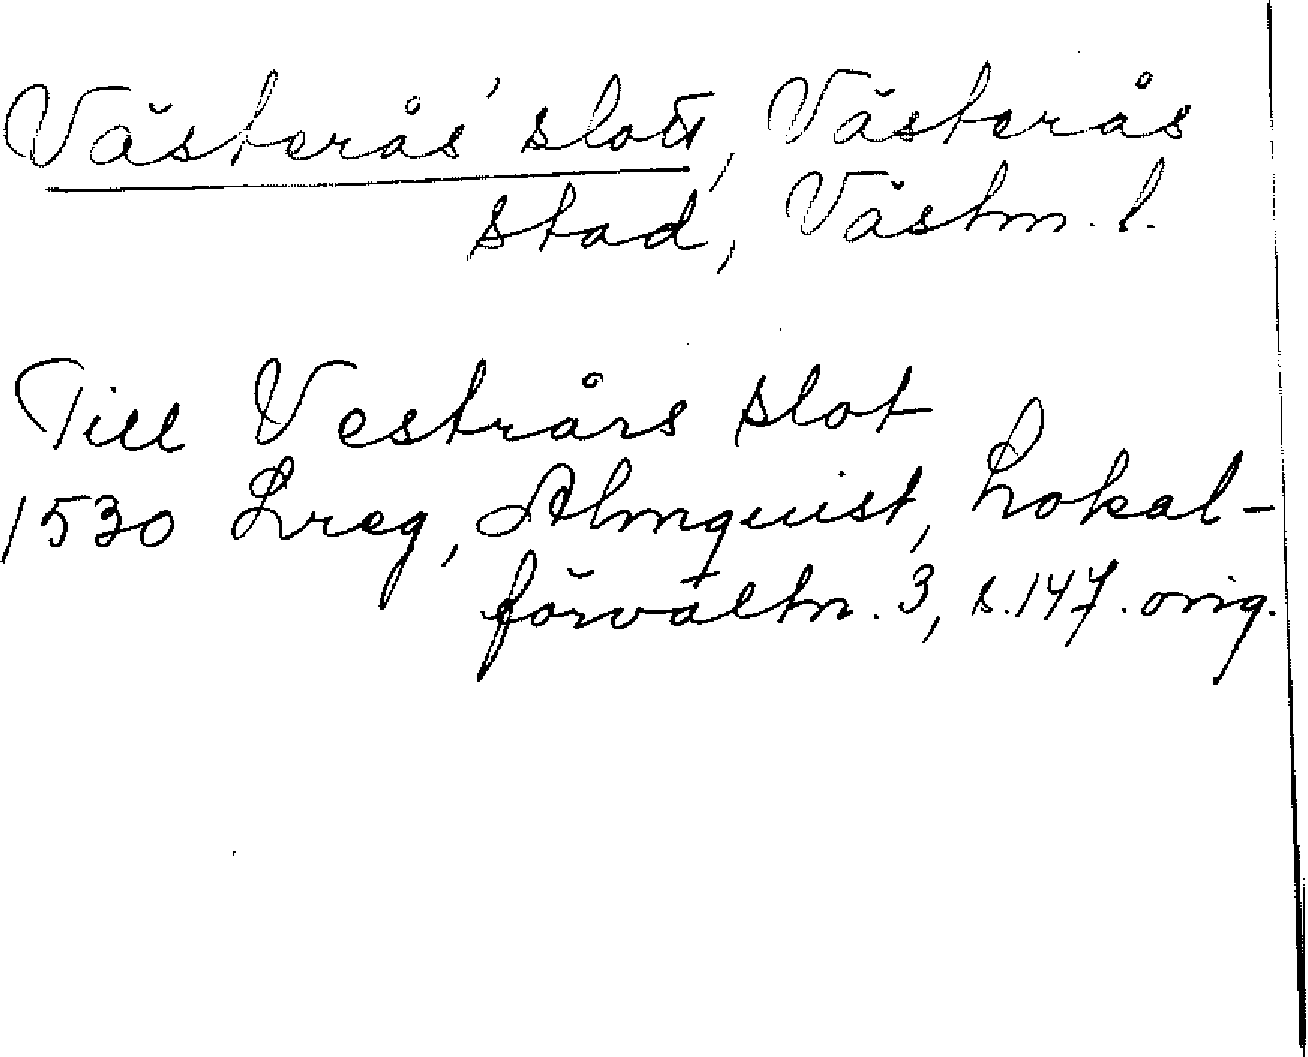 Västerås' slott, Västerås
stad, Västm. l.
Till Vestrårs slot
1530 Lreg, Almquist, Lokal-
förvaltn. 3, s. 147. orig.